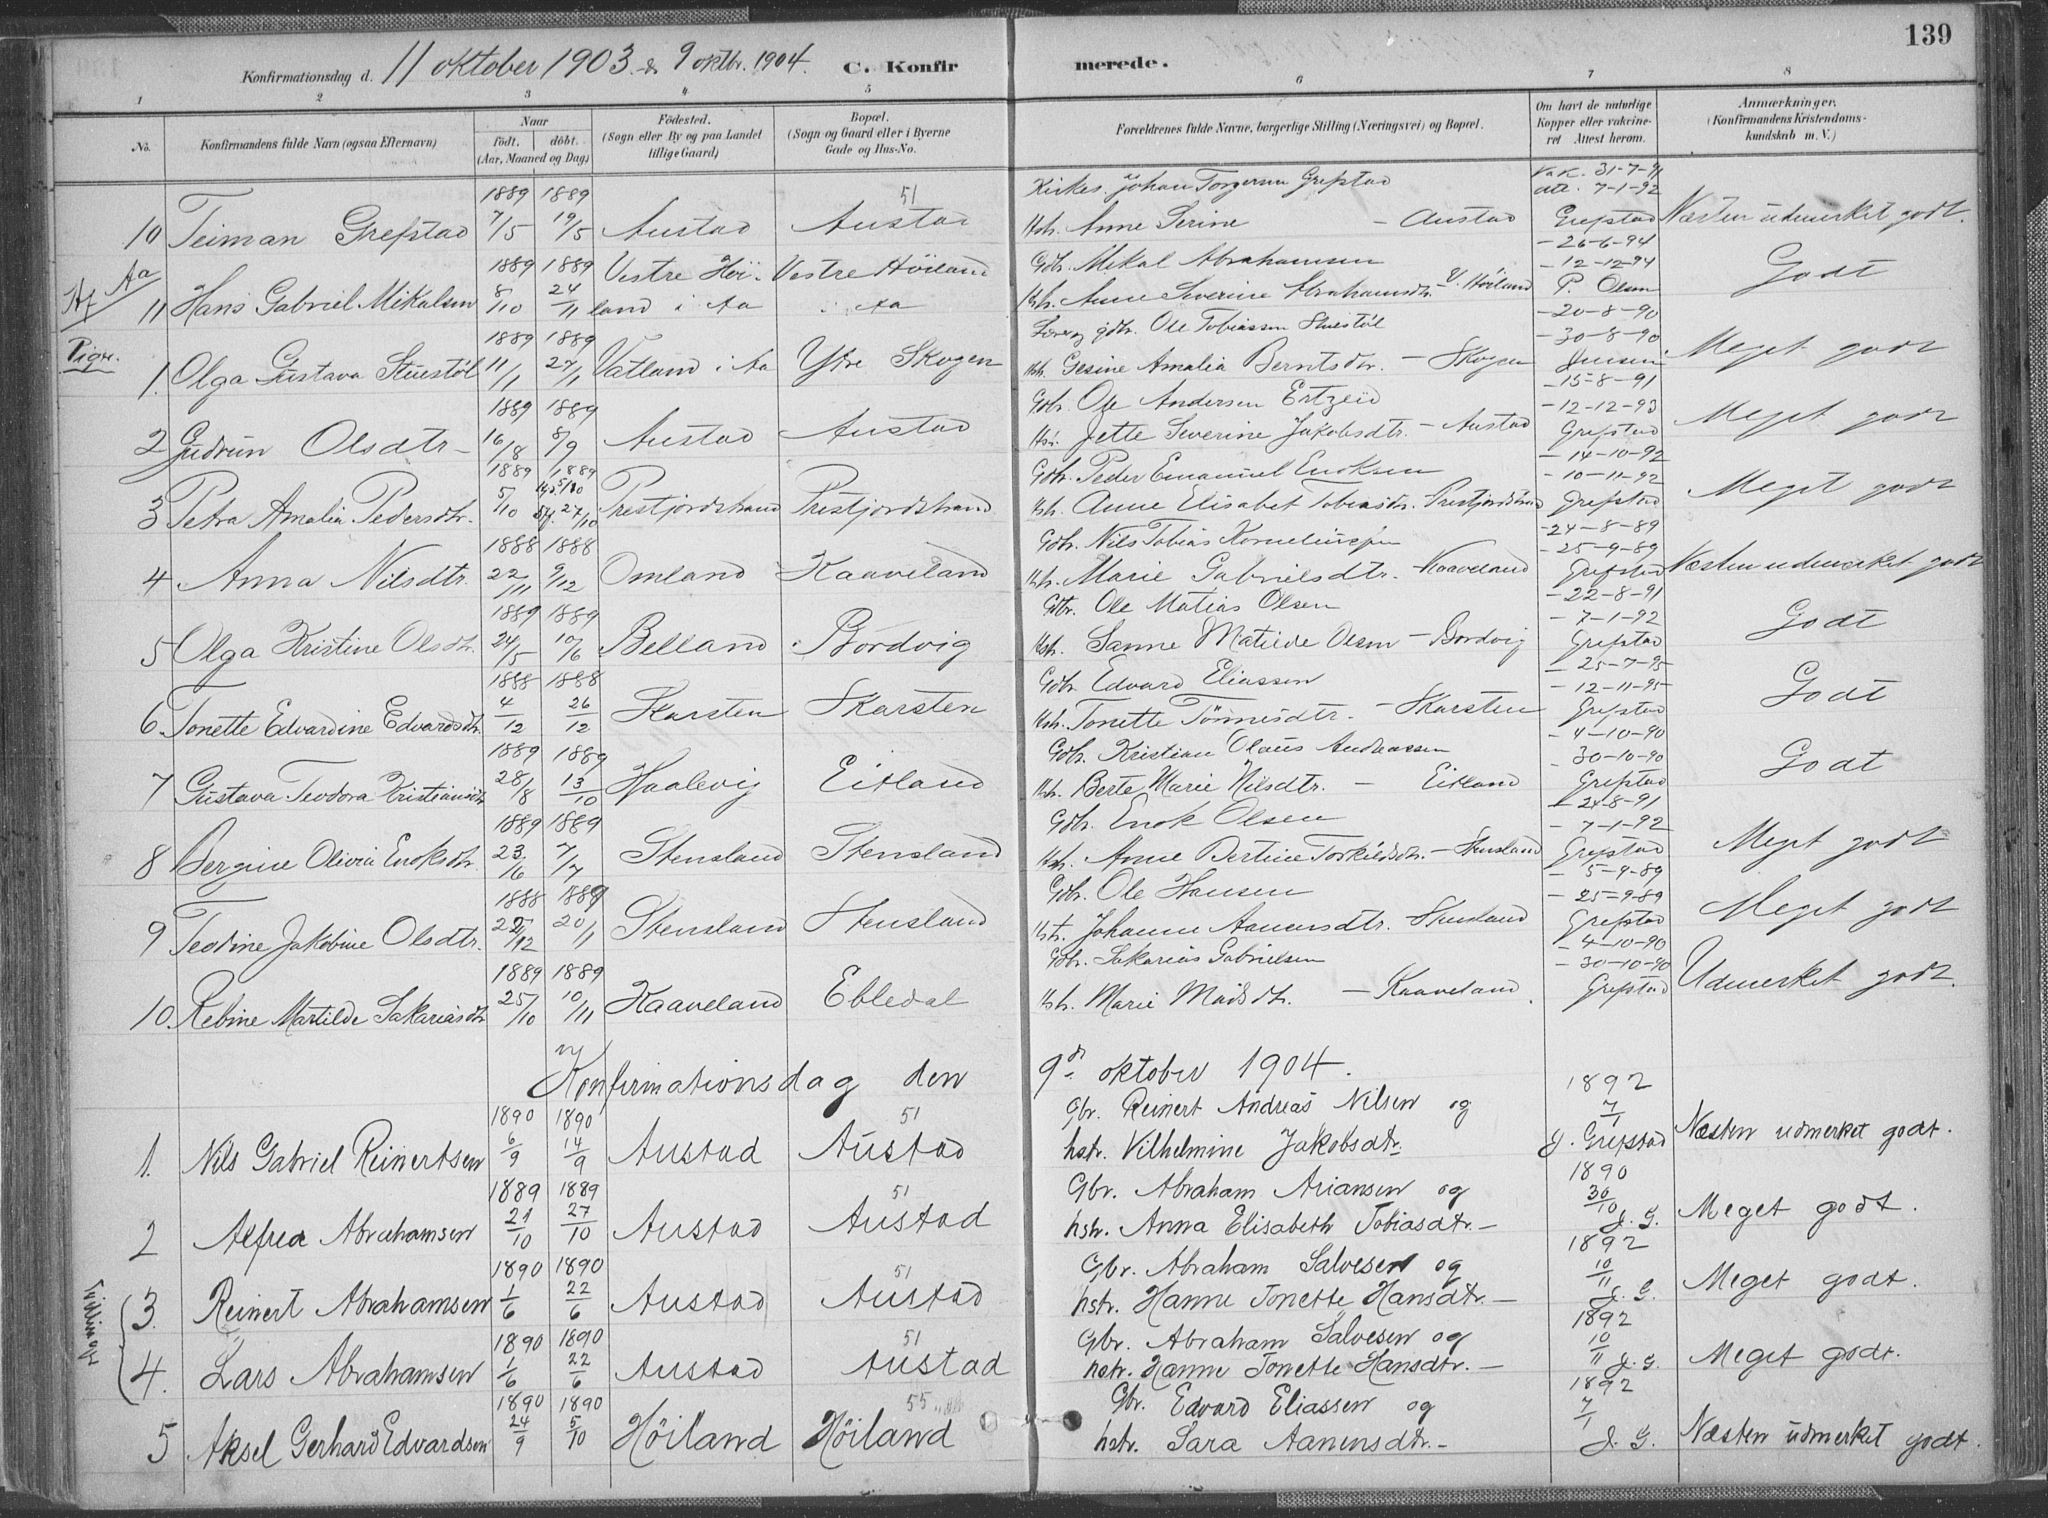 139
Konfirmationsdag d. 11 oktober 1903 & 9 oktbr. 1904. C. Konfirmerede.
1 2 3 4 5 6 7 8
No. Konfirmandens fulde Navn (ogsaa Efternavn) Naar født. døbt. (Aar, Maaned og Dag) Fødested. (Sogn eller By og paa Landet tillige Gaard) Bopæl. (Sogn og Gaard eller i Byerne Gade og Hus-No. Forældrenes fulde Navne, borgerlige Stilling (Næringsvei) og Bopæl. Om havt de naturlige Kopper eller vakcineret Attest herom. Anmærkninger. (Konfirmandens Kristendomskundskab m. V.)
1889 1889 51 Kirkes. Johan Torgersen Grefstad Vak. 31-7-91
att. 7-1-92
10 Teiman Grefstad 7/5 19/5 Austad Austad Hst. Anne Serine - Austad Grefstad Næsten udmerket godt.
Aa 1889 1889 Vestre Høi- Vestre Høiland Gbr. Mikal Abrahamsen - 26-6-94
- 12-12-94
11 Hans Gabriel Mikalsen 8/10 24/11 land i Aa i Aa Hst. Anne Severine Abrahamsdtr. V. Høiland P. Olsen Godt
Piger. 1889 1889 gbr. Ole Tobiassen Stuestøl - 20-8-90
- 30-8-90
1. Olga Gustava Stuestøl 11/1 27/1 Vatland i Aa Ytre Skogen Hst. Gesine Amalia Berntsdtr. - Skogen Jensen Meget godt
1889 1889 Gbr. Ole Andersen Ertzeid - 15-8-91
- 12-12-93
2 Gudrun Olsdtr. 16/8 8/9 Austad Austad Hst. Jette Severine Jakobsdtr. - Austad Grefstad Meget godt
1889 1889 Gbr. Peder Emanuel Enoksen - 14-10-92
- 10-11-92
3 Petra Amalia Pedersdtr. 5/10 27/10 Prestjordstrand Prestjordstrand Hst. Anne Elisabet Tobiasdtr. Prestjordstrand Grefstad Meget godt
1888 1888 Gbr. Nils Tobias Korneliussen - 24-8-89
- 25-9-89
4 Anna Nilsdtr. 22/11 9/12 Omland Kaaveland Hst. Marie Gabrielsdtr. - Kaaveland Grefstad Næsten udmerket godt
1889 1889 Gbr. Ole Matias Olsen - 22-8-91
- 7-1-92
5 Olga Kristine Olsdtr. 24/5 10/6 Belland Bordvig Hst. Sanne Matilde Olsen - Bordvig Grefstad Godt
1888 1888 Gbr. Edvard Eliassen - 25-7-95
- 12-11-95
6. Tonette Edvardine Edvardsdtr. 4/12 26/12 Skarsten Skarsten Hst. Tonette Tønnesdtr. - Skarsten Grefstad Godt
1889 1889 Gbr. Kristian Olaus Andreassen - 4-10-90
30-10-90
7 Gustava Teodora Kristiansdtr. 28/8 13/10 Haalevig Eitland Hst. Berte Marie Nilsdtr. - Eitland Grefstad Godt
1889 1889 Gbr. Enok Olsen - 24-8-91
- 7-1-92
8 Bergine Olivia Enoksdtr. 23/6 7/7 Stensland Stensland Hst. Anne Bertine Torkildsdtr. - Stensland Grefstad Meget godt
1888 1889 Gbr. Ole Hansen - 5-9-89
- 25-9-89
9 Teodine Jakobine Olsdtr. 22/12 20/1 Stensland Stensland Hst. Johanne Aanensdtr. Stensland Grefstad Meget godt
1889 1889 Gbr. Sakarias Gabrielsen - 4-10-90
- 30-10-90
10. Rebine Martilde Sakariasdtr. 25/10 10/11 Kaaveland Ebledal Hst. Marie Madsdtr. - Kaaveland Grefstad Udmerket godt.
Konfirmationsdag den 9de oktober 1904.
1890 1890 51 Gbr. Reinert Andreas Nilsen og 1892
1. Nils Gabriel Reinertsen 6/9 14/9 Austad Austad hstr. Vilhelmine Jakobsdtr. 7/1 J. Grefstad Næsten udmerket godt.
1889 1889 51 Gbr. Abraham Ariansen og 1890
2 Alfred Abrahamsen 21/10 27/10 Austad Austad hstr. Anna Elisabeth Tobiasdtr. - 30/10 J. G. Meget godt.
1890 1890 51 Gbr. Abraham Salvesen og 1892
Tvillinger
3. Reinert Abrahamsen 1/6 22/6 Austad Austad hstr. Hanne Tonette Hansdtr. - 10/11 J. G. Meget godt.
1890 1890 51 Gbr. Abraham Salvesen og 1892
4. Lars Abrahamsen 1/6 22/6 Austad Austad hstr. Hanne Tonette Hansdtr. - 10/11 J. G. Meget godt.
1890 1890 55 Gbr. Edvard Eliassen og 1892
5 Aksel Gerhard Edvardsen 24/9 5/10 Høiland Høiland hstr. Sara Aanensdtr. - 7/1 J. G. Næsten udmerket godt.